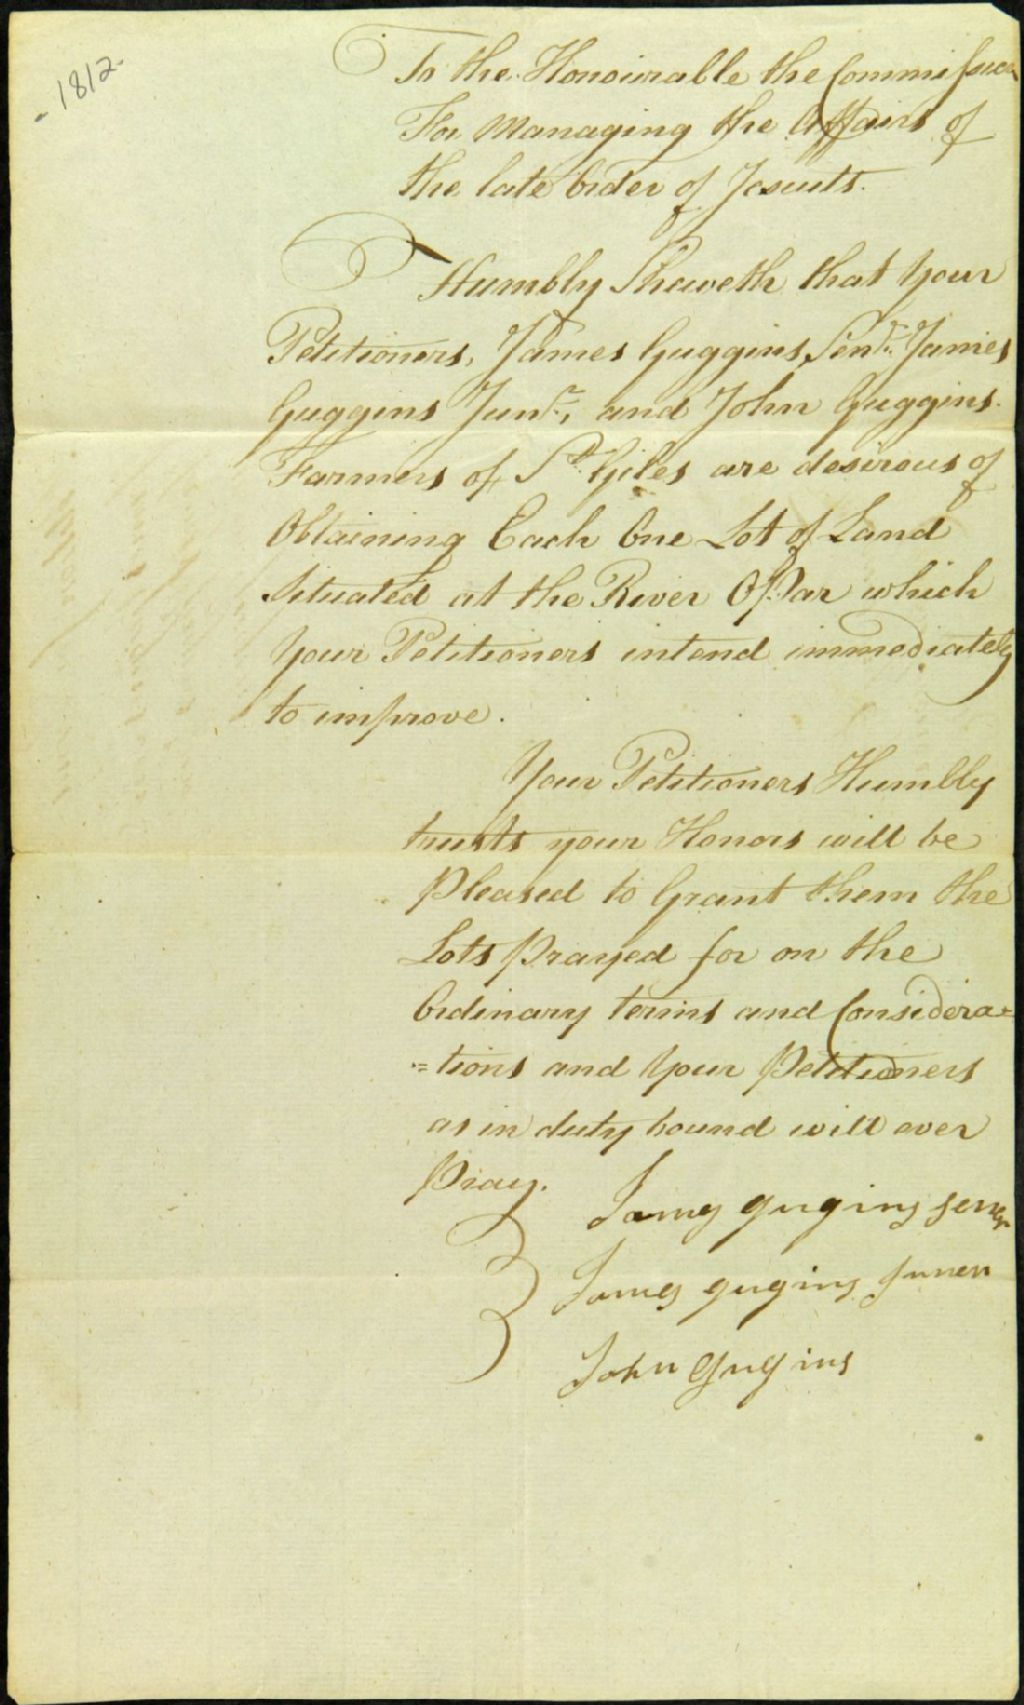 1812
To the Honourable the Commissioners
For Managing the Affairs of
the late Order of Jesuits.
Humbly Sheweth that your
Petitioners, James Guggins, Senr. James
Guggins Junr., and John Guggins.
Farmers of St. Giles are desirous of
Obtaining Each One Lot of Land
Situated at the River O'Par which
your Petitioners intend immediately
to improve.
Your Petitioners Humbly
trusts your Honors will be
Pleased to Grant them the
Lots Prayed for on the
Ordinary terms and Considera=
=tions and Your Petitioners
as in duty bound will ever
Pray.
James gugins sener
James gugins Juner
John Gugins